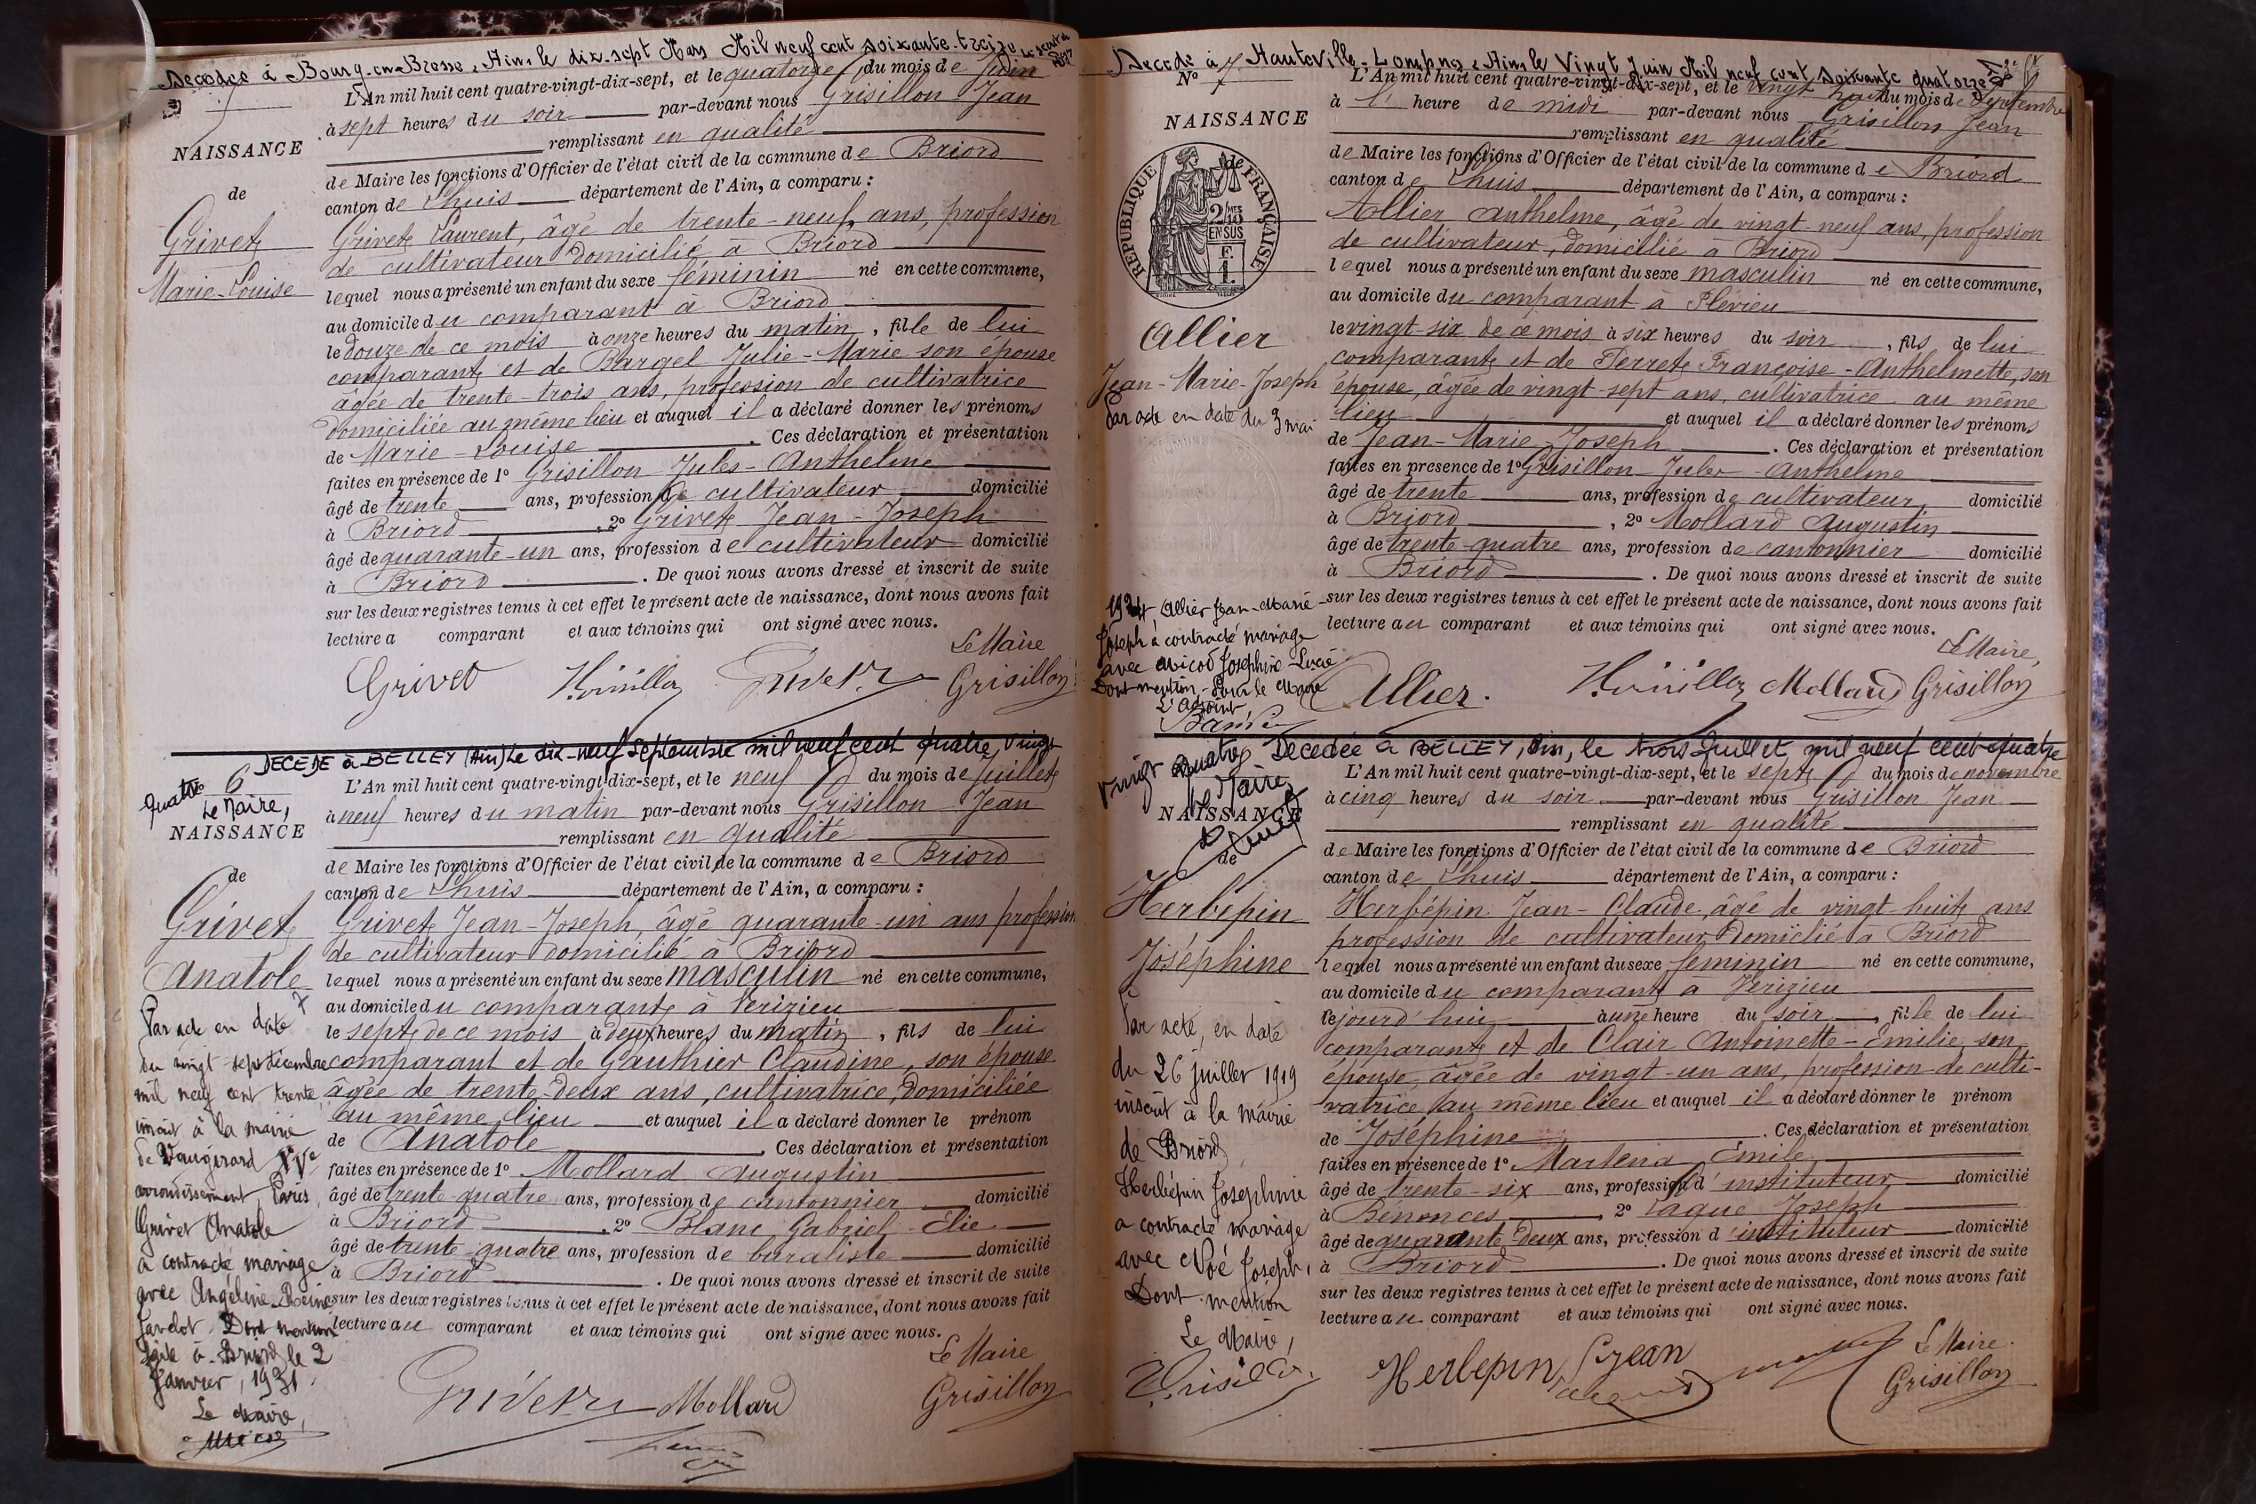 Decedee à Bourg-en-Bresse, Ain, le dix-sept Mars Mil neuf cent soixante-treize
NAISSANCE
de
Grivet
Marie-Louise
L'An mil huit cent quatre-vingt-dix-sept, et le quatorze du mois de Juin
à sept heures du soir par-devant nous Grisillon Jean
remplissant en qualité
de Maire les fonctions d'Officier de l'état civil de la commune de Briord
canton de Lhuis département de l'Ain, a comparu :
Grivet Laurent, âgé de trente-neuf ans, profession
de cultivateur domicilié à Briord
lequel nous a présenté un enfant du sexe féminin né en cette commune,
au domicile du comparant à Briord
le douze de ce mois à onze heures du matin, fille de lui
comparant et de Bargel Julie-Marie son épouse
âgée de trente-trois ans, profession de cultivatrice
domiciliée au même lieu et auquel il a déclaré donner les prénoms
de Marie-Louise . Ces déclaration et présentation
faites en présence de 1º Grisillon Jules-Anthelme
âgé de trente ans, profession de cultivateur domicilié
à Briord , 2º Grivet Jean-Joseph
âgé de quarante-un ans, profession de cultivateur domicilié
à Briord . De quoi nous avons dressé et inscrit de suite
sur les deux registres tenus à cet effet le présent acte de naissance, dont nous avons fait
lecture a comparant et aux témoins qui ont signé avec nous.
Le Maire
Grivet Grisillon
DECEDE à BELLEY (Ain) Le dix-neuf Septembre mil neuf cent quatre Vingt
quatre 6
Le Maire,
NAISSANCE
de
Grivet
Anatole
Par acte en date
du vingt-sept décembre
mil neuf cent trente
inscrit à la mairie
de Vaugirard XVe
arrondissement, Paris,
Grivet Anatole
a contracté mariage
avec Angéline-Reine
Javelot. Dont mention
faite à Briord le 2
Janvier, 1931.
Le Maire,
L'An mil huit cent quatre-vingt-dix-sept, et le neuf du mois de Juillet
à neuf heures du matin par-devant nous Grisillon Jean
remplissant en qualité
de Maire les fonctions d'Officier de l'état civil de la commune de Briord
canton de Lhuis département de l'Ain, a comparu :
Grivet Jean-Joseph, âgé quarante-un ans profession
de cultivateur domicilié à Briord
lequel nous a présenté un enfant du sexe masculin né en cette commune,
au domicile du comparant à Vérizieu
le sept de ce mois à deux heures du matin, fils de lui
comparant et de Gauthier Claudine, son épouse
âgée de trente-deux ans, cultivatrice, domiciliée
au même lieu et auquel il a déclaré donner le prénom
de Anatole . Ces déclaration et présentation
faites en présence de 1º Mollard Augustin
âgé de trente-quatre ans, profession de cantonnier domicilié
à Briord , 2º Blanc Gabriel-Elie
âgé de trente-quatre ans, profession de buraliste domicilié
à Briord . De quoi nous avons dressé et inscrit de suite
sur les deux registres tenus à cet effet le présent acte de naissance, dont nous avons fait
lecture au comparant et aux témoins qui ont signé avec nous.
Le Maire
Mollard Grisillon
Decede à Hauteville-Lompnes, Ain, le Vingt Juin Mil neuf cent soixante quatorze
Nº 7
NAISSANCE
REPUBLIQUE FRANÇAISE
2/10 MES
EN SUS
F.
1.
Allier
Jean-Marie-Joseph
Par acte en date du 3 mai
1924, Allier Jean-Marie-
Joseph a contracté mariage
avec Josephine-Lucie
Dont mention. Pour le Maire
L'Adjoint,
L'An mil huit cent quatre-vingt-dix-sept, et le vingt huit du mois de Septembre
à l' heure de midi par-devant nous Grisillon Jean
remplissant en qualité
de Maire les fonctions d'Officier de l'état civil de la commune de Briord
canton de Lhuis département de l'Ain, a comparu :
Allier Anthelme, âgé de vingt-neuf ans, profession
de cultivateur, domicilié à Briord
lequel nous a présenté un enfant du sexe masculin né en cette commune,
au domicile du comparant à Flévieu
le vingt-six de ce mois à six heures du soir, fils de lui
comparant et de Perret Françoise-Anthelmette, son
épouse, âgée de vingt-sept ans, cultivatrice au même
lieu et auquel il a déclaré donner les prénoms
de Jean-Marie-Joseph . Ces déclaration et présentation
faites en présence de 1º Grisillon Jules-Anthelme
âgé de trente ans, profession de cultivateur domicilié
à Briord , 2º Mollard Augustin
âgé de trente-quatre ans, profession de cantonnier domicilié
à Briord . De quoi nous avons dressé et inscrit de suite
sur les deux registres tenus à cet effet le présent acte de naissance, dont nous avons fait
lecture au comparant et aux témoins qui ont signé avec nous.
Le Maire,
Allier. Mollard Grisillon
Décédée à BELLEY, Ain, le trois Juillet mil neuf cent quatre
vingt quatre
Le Maire
NAISSANCE
de
Herbépin
Joséphine
Par acte, en date
du 26 juillet 1919
inscrit à la mairie
de Briord,
Herbépin Josephine
a contracté mariage
avec Noé Joseph,
Dont mention
Le Maire,
Grisillon
L'An mil huit cent quatre-vingt-dix-sept, et le sept du mois de novembre
à cinq heures du soir par-devant nous Grisillon Jean
remplissant en qualité
de Maire les fonctions d'Officier de l'état civil de la commune de Briord
canton de Lhuis département de l'Ain, a comparu :
Herbépin Jean-Claude, âgé de vingt-huit ans
profession de cultivateur domicilié à Briord
lequel nous a présenté un enfant du sexe féminin né en cette commune,
au domicile du comparant à Vérizieu
cejourd'hui à une heure du soir, fille de lui
comparant et de Clair Antoinette-Emilie, son
épouse, âgée de vingt-un ans, profession de culti-
vatrice au même lieu et auquel il a déclaré donner le prénom
de Joséphine . Ces déclaration et présentation
faites en présence de 1º Emile
âgé de trente-six ans, profession d'instituteur domicilié
à Bénonces , 2º Jaque Joseph
âgé de quarante-deux ans, profession d'instituteur domicilié
à Briord . De quoi nous avons dressé et inscrit de suite
sur les deux registres tenus à cet effet le présent acte de naissance, dont nous avons fait
lecture au comparant et aux témoins qui ont signé avec nous.
Le Maire.
Herbepin Jean Grisillon